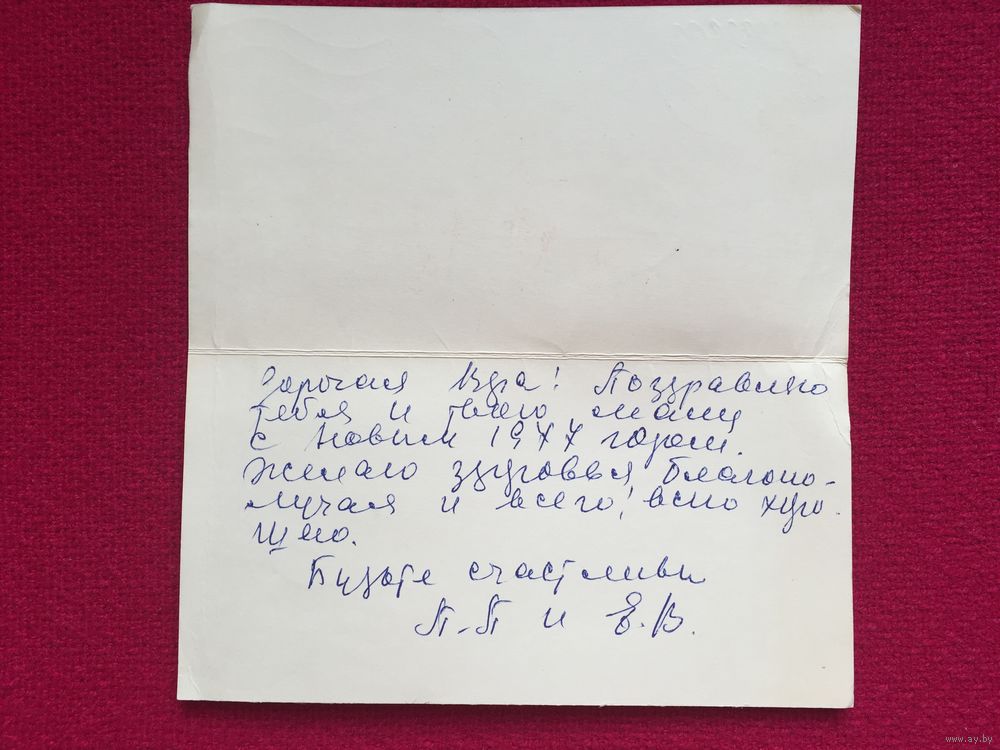 Дорогая Ира! Поздравляю
тебя и твою маму
с Новым 1977 годом.
Желаю здоровья, благопо-
лучая и всего, всего хоро-
шего.
Будьте счастливы
П.П и Е.В.
www.ay.by